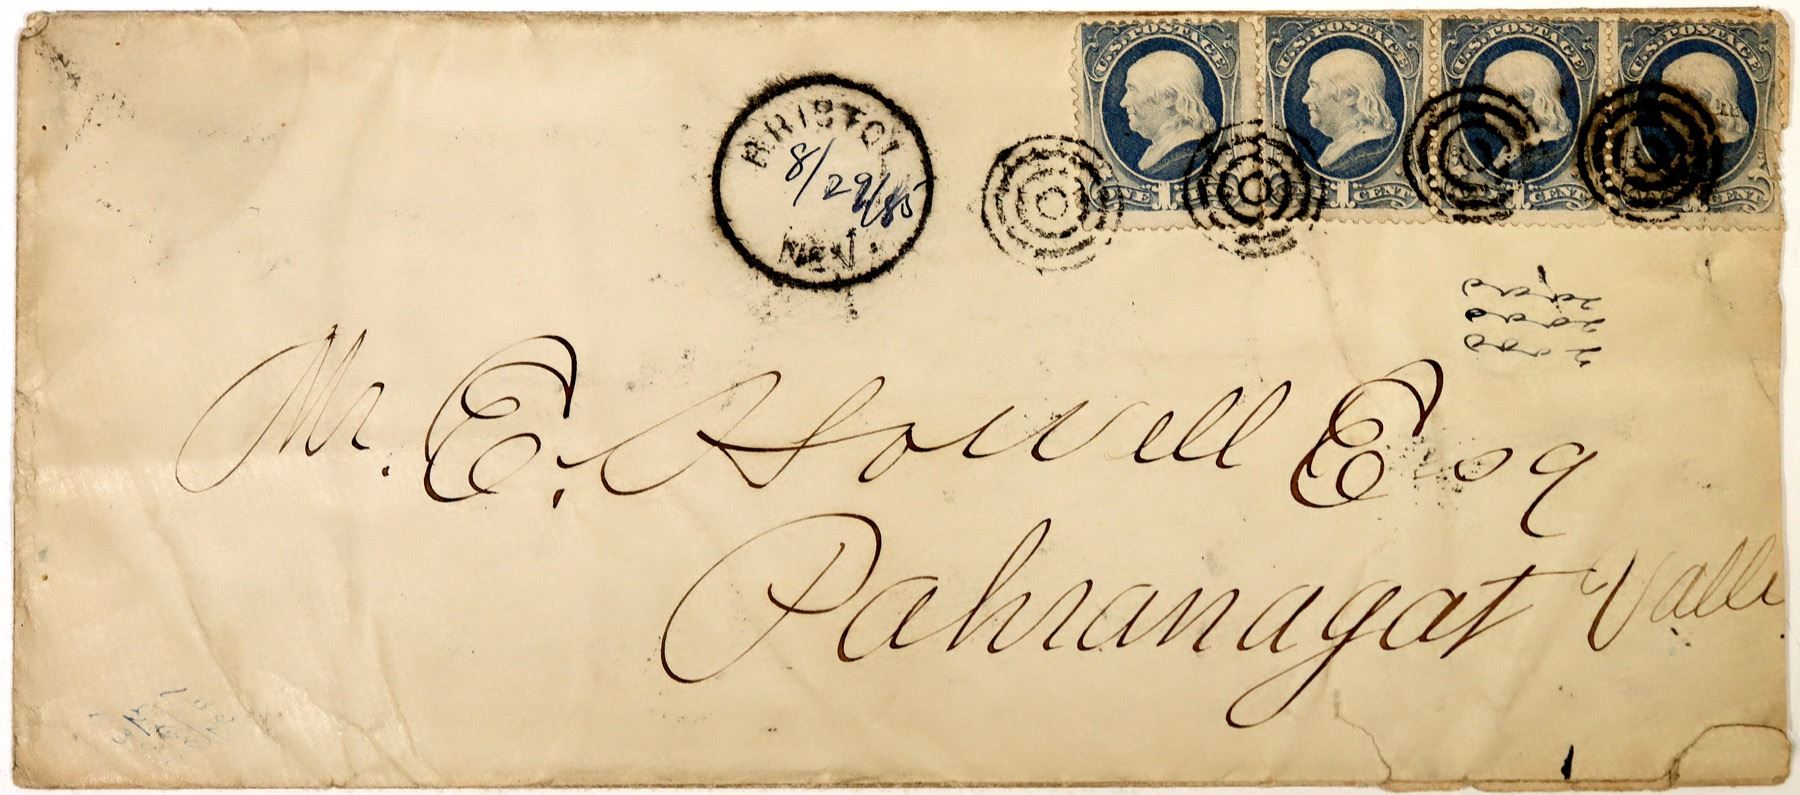 U.S. POSTAGE U.S. POSTAGE U.S. POSTAGE U.S. POSTAGE
ONE 1 CENT 1 CENT CENT CENT
BRISTOL
8/29/85
NEV.
Mr. E. Howell Esq
Pahranagat Valle